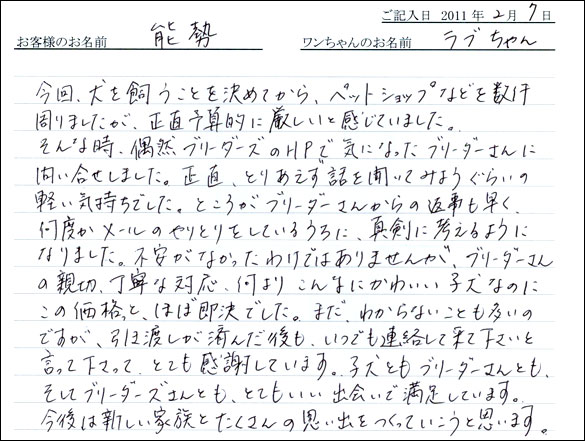 ご記入日 2011年2月7日
お客様のお名前 能勢 ワンちゃんのお名前 ラブちゃん
今回、犬を飼うことを決めてから、ペットショップなどを数件
周りましたが、正直予算的に厳しいと感じていました。
そんな時、偶然ブリーダーズのHPで気になったブリーダーさんに
問い合せしました。正直、とりあえず話を聞いてみようぐらいの
軽い気持ちでした。ところがブリーダーさんからの返事も早く、
何度かメールのやりとりをしているうちに、真剣に考えるように
なりました。不安がなかったわけではありませんが、ブリーダーさん
の親切、丁寧な対応、何よりこんなにかわいい子犬なのに
この価格と、ほぼ即決でした。まだ、わからないことも多いの
ですが、引き渡しが済んだ後も、いつでも連絡して来て下さいと
言って下さって、とても感謝しています。子犬ともブリーダーさんとも、
そしてブリーダーズさんとも、とてもいい出会いで満足しています。
今後は新しい家族とたくさんの思い出をつくっていこうと思います。